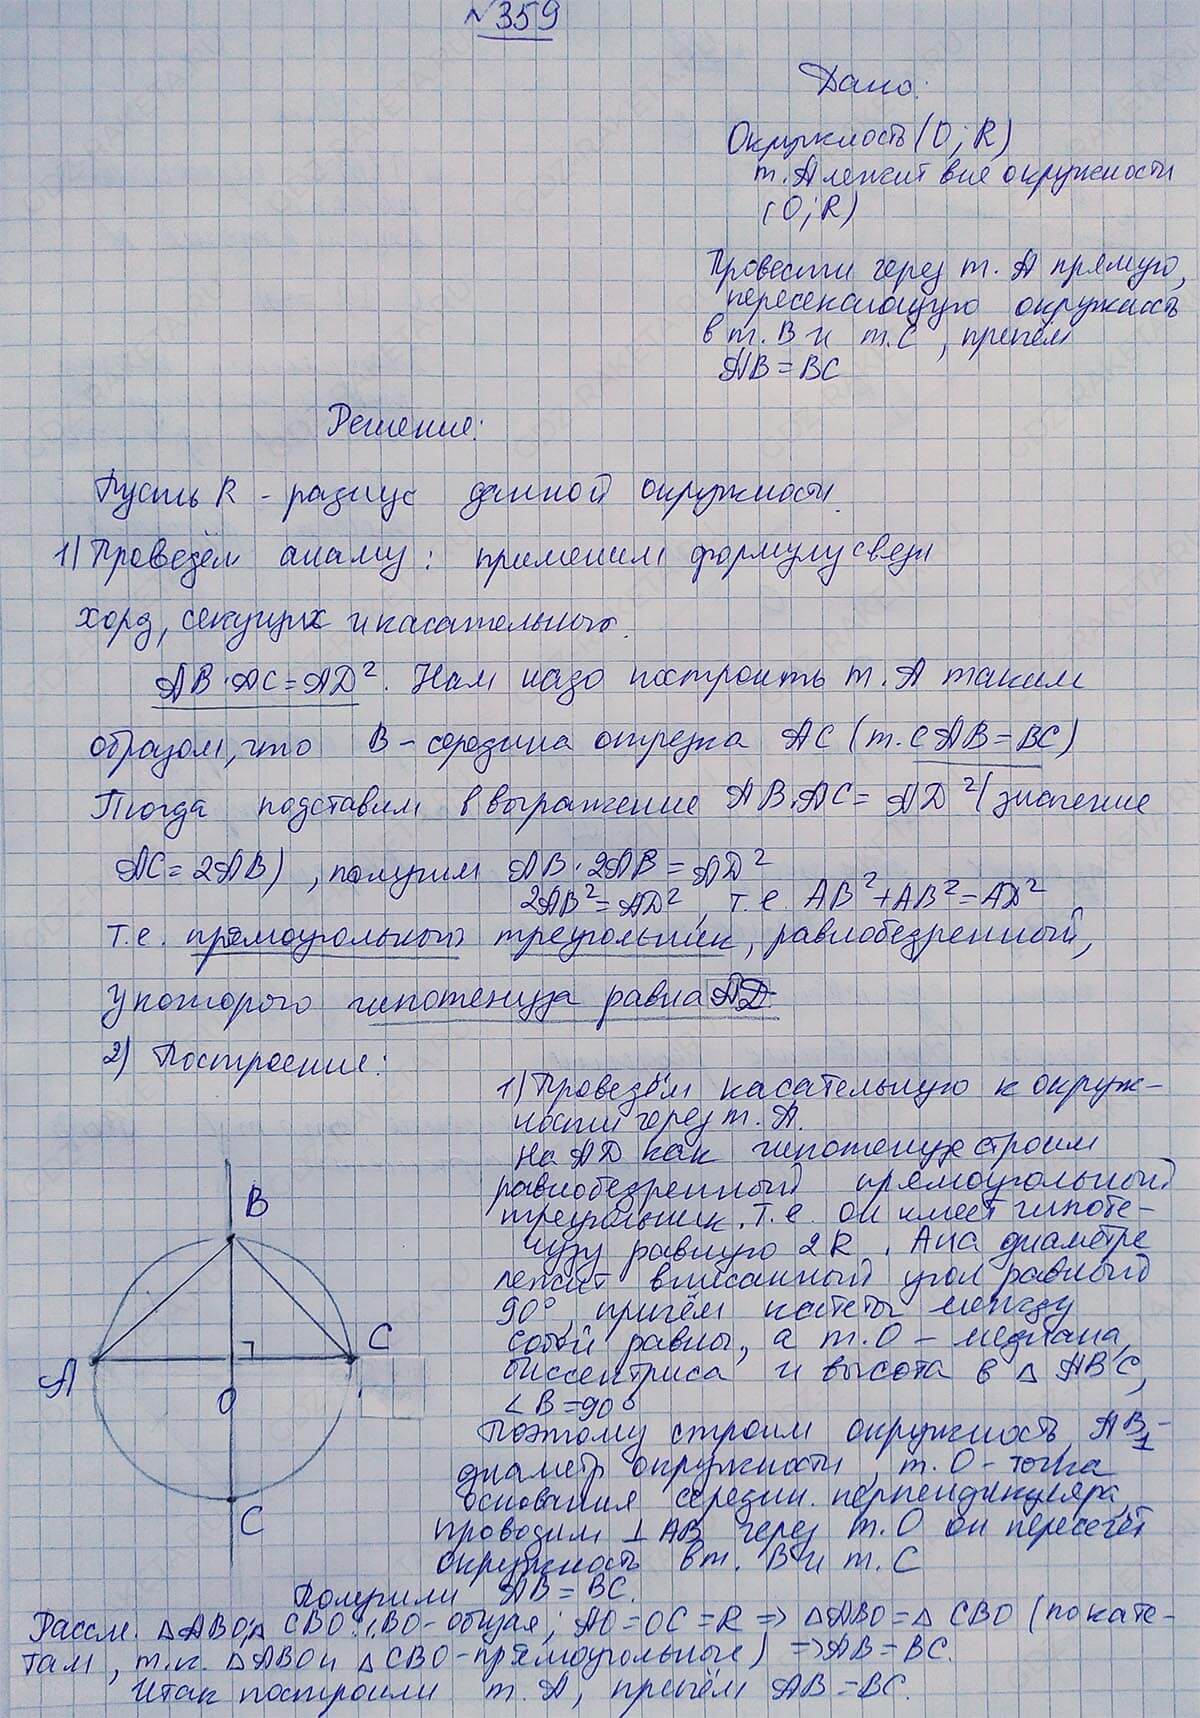 №359
Дано:
Окружность (O; R)
т. A лежит вне окружности
(O; R)
Провести через т. A прямую,
пересекающую окружность
в т. B и т. C, причём
AB = BC
Решение:
Пусть R - радиус данной окружности.
1) Проведём анализ: применим формулу связи
хорд, секущих и касательного.
AB · AC = AD². Нам надо построить т. A таким
образом, что B - середина отрезка AC (т. с AB = BC)
Тогда подставим в выражение AB · AC = AD² (значение
AC = 2AB), получим AB · 2AB = AD²
2AB² = AD², т.е. AB² + AB² = AD²
т.е. прямоугольный треугольник, равнобедренный,
у которого гипотенуза равна AD
2) Построение:
1) Проведём касательную к окруж-
ности через т. A.
На AD как гипотенузе строим
равнобедренный прямоугольный
треугольник. т.е. он имеет гипоте-
нузу равную 2R. А на диаметре
лежит вписанный угол равный
90°, причём катеты между
собой равны, а т. O - медиана,
биссектриса и высота в △ ABC,
∠B = 90°
Поэтому строим окружность, AB₁ -
диаметр окружности, т. O - точка
основания середин. перпендикуляра,
проводим ⊥ AB через т. O он пересечёт
окружность в т. B и т. C
Получили AB = BC.
Рассм. △ ABO; △ CBO: BO - общая; AO = OC = R => △ABO = △ CBO (по кате-
там, т.к. △ABO и △CBO - прямоугольные) => AB = BC.
Итак построили т. A, причём AB = BC.
B
A
C
O
C